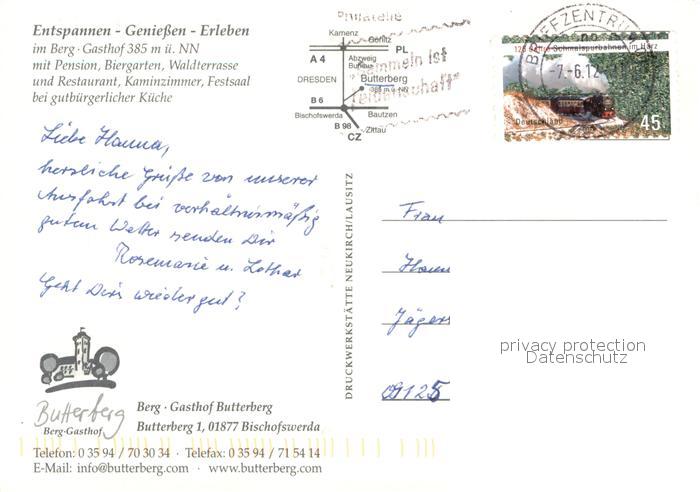 Entspannen - Genießen - Erleben
im Berg · Gasthof 385 m ü. NN
mit Pension, Biergarten, Waldterrasse
und Restaurant, Kaminzimmer, Festsaal
bei gutbürgerlicher Küche
Philatelie
Sammeln ist
Leidenschaft"
Kamenz
Görlitz
A 4
PL
Abzweig
DRESDEN
Butterberg
385 m ü. NN
B 6
Bischofswerda
Bautzen
B 98
Zittau
CZ
BRIEFZENTRUM
-7.-6.12
125 Jahre Schmalspurbahnen im Harz
Deutschland
45
Liebe Hanna,
herzliche Grüße von unserer
Ausfahrt bei verhältnismäßig
gutem Wetter senden Dir
Rosemarie u. Lothar
Geht Dir's wieder gut?
DRUCKWERKSTÄTTE NEUKIRCH/LAUSITZ
Frau
Hann
Jägers
09125
privacy protection
Datenschutz
Butterberg
Berg-Gasthof
Berg · Gasthof Butterberg
Butterberg 1, 01877 Bischofswerda
Telefon: 0 35 94 / 70 30 34 · Telefax: 0 35 94 / 71 54 14
E-Mail: info@butterberg.com · www.butterberg.com